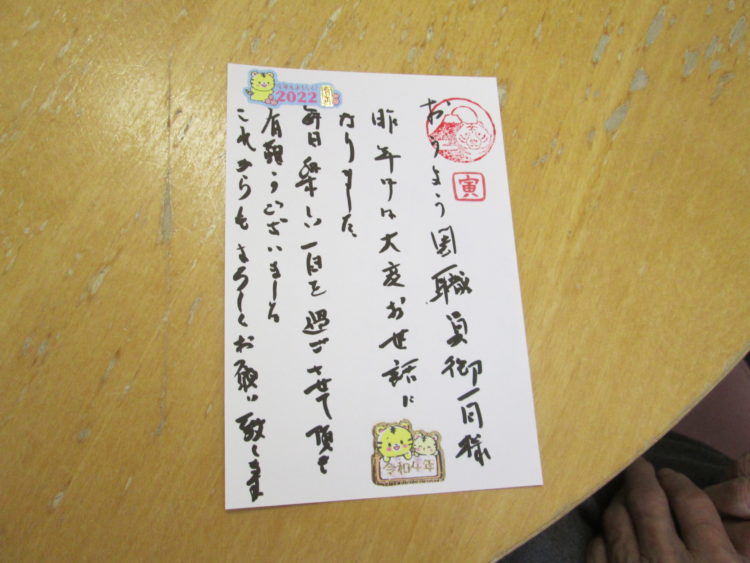 おうよう園職員御一同様
昨年中は大変お世話に
なりました、
毎日楽しい一日を過ごさせて頂き
有難うございました
これからもよろしくお願い致します
2022
寅